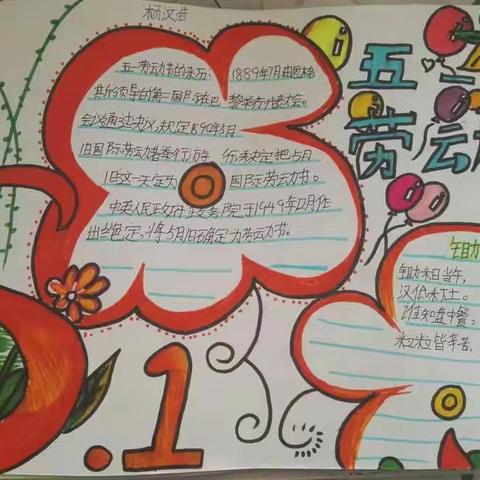 杨文浩
五一
劳动
五一劳动节的来历: 1889年7月由恩格
斯领导的第一国际在巴黎举行代表会。
会议通过决议,规定1890年5月
1日国际劳动者举行游行,决定把5月
1日这一天定为国际劳动节。
中央人民政府政务院于1949年12月作
出决定,将5月1日确定为劳动节。
锄
锄禾日当午,
汗低禾土。
谁知盘中餐,
粒粒皆辛苦,
5.1